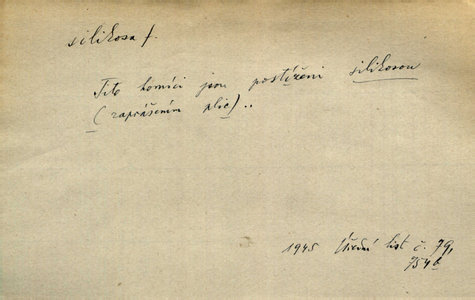 silikosa f.
Tito horníci jsou postiženi silikosou
(zaprášením plic)..
1945 Úřední list č. 79,
754b